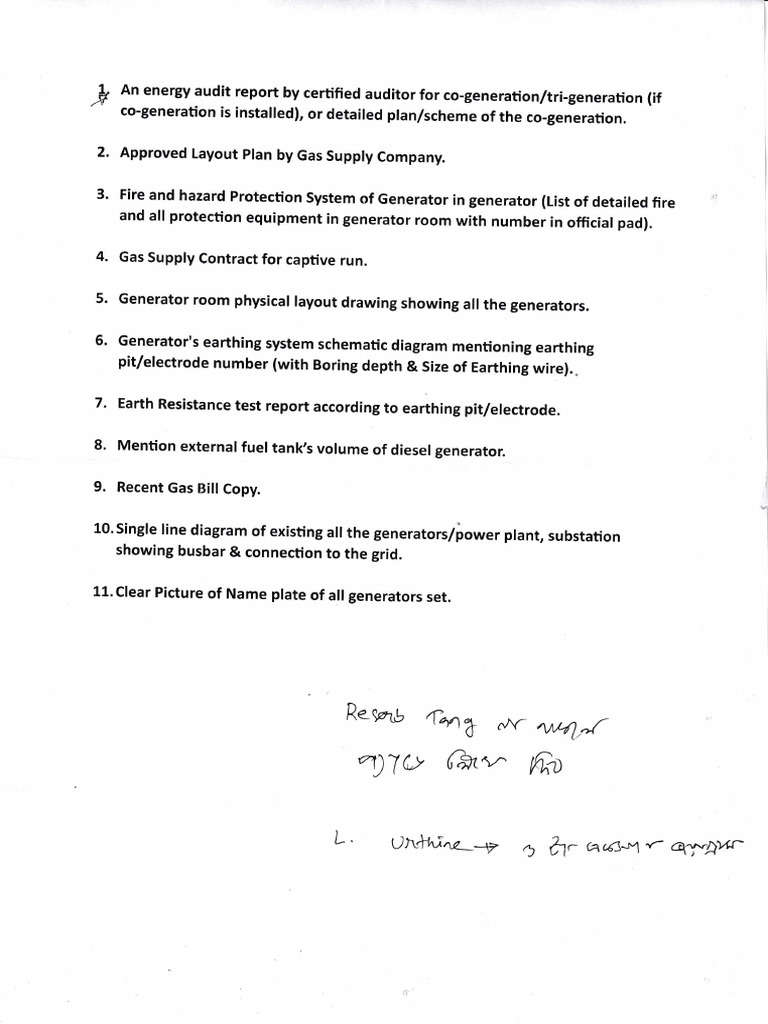 1. An energy audit report by certified auditor for co-generation/tri-generation (if
co-generation is installed), or detailed plan/scheme of the co-generation.
2. Approved Layout Plan by Gas Supply Company.
3. Fire and hazard Protection System of Generator in generator (List of detailed fire
and all protection equipment in generator room with number in official pad).
4. Gas Supply Contract for captive run.
5. Generator room physical layout drawing showing all the generators.
6. Generator's earthing system schematic diagram mentioning earthing
pit/electrode number (with Boring depth & Size of Earthing wire).
7. Earth Resistance test report according to earthing pit/electrode.
8. Mention external fuel tank’s volume of diesel generator.
9. Recent Gas Bill Copy.
10. Single line diagram of existing all the generators/power plant, substation
showing busbar & connection to the grid.
11. Clear Picture of Name plate of all generators set.